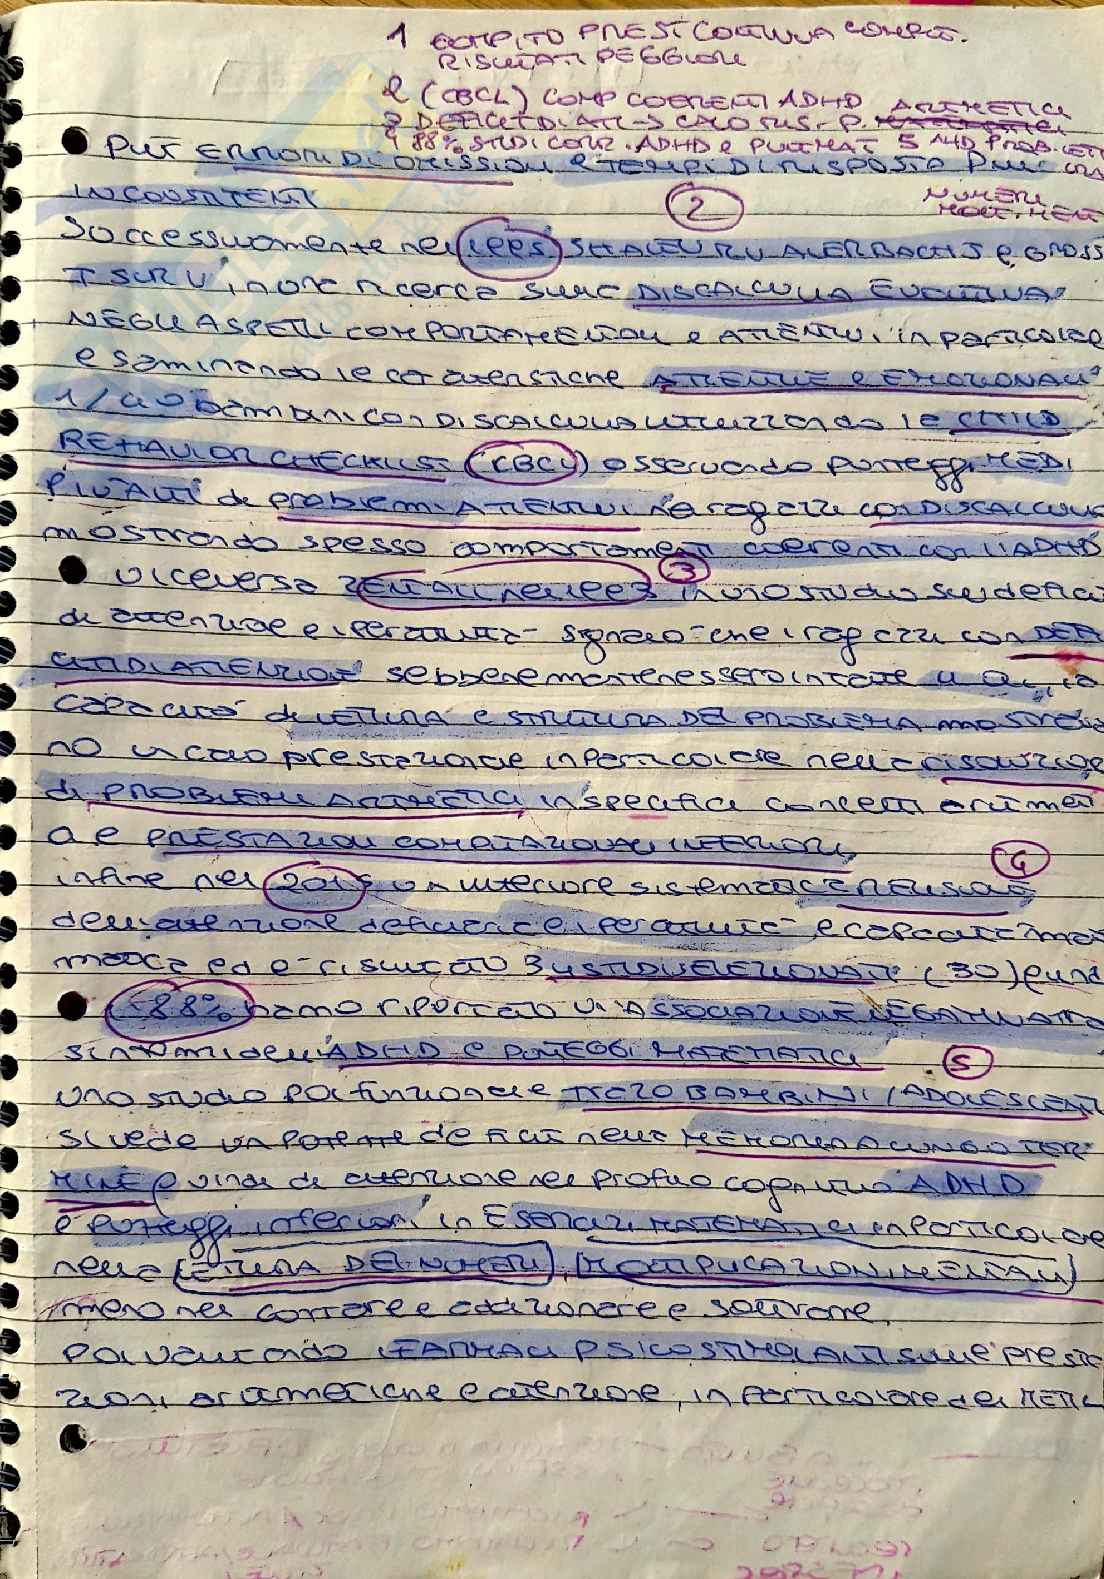 1 COMPITO PREST CONTINUA COMPIT.
RISULTATI PEGGIORI
2 (CBCL) COMP COERENTI ADHD ARITMETICI
3 DEFICIT DI ATT → CALO RIS. P.
4 88% STUDI CORR. ADHD e PUNT MAT 5 ADHD PROB LETTURA
NUMERI
MOLT. MENT
PIU' ERRORI DI OMISSIONI e TEMPI DI RISPOSTA PIU'
INCONSISTENTI
2
Successivamente nel SHALEV RV AUERBACH J e GROSS
TSUR V in una ricerca sulla DISCALCULIA EVOLUTIVA
NEGLI ASPETTI COMPORTAMENTALI e ATTENTIVI, in particolare
esaminando le caratteristiche ATTENTIVE e EMOZIONALI
bambini con DISCALCULIA utilizzando la CHILD
BEHAVIOR CHECKLIST (CBCL) osservando punteggi MEDI
PIU' ALTI di problemi ATTENTIVI nei ragazzi con DISCALCULIA
mostrando spesso comportamenti coerenti con l'ADHD
3
viceversa ZENTALL nel in uno studio sui deficit
di attenzione e iperattività segnalò che i ragazzi con DEFI
CIT DI ATTENZIONE sebbene mantenessero intatte
capacità di LETTURA e STRUTTURA DEL PROBLEMA mostrava
no un calo prestazionale in particolare nella risoluzione
di PROBLEMI ARITMETICI, in specifici concetti aritmeti
ci e PRESTAZIONI COMPUTAZIONALI INFERIORI,
4
infine nel 2015 un ulteriore sistematica REVISIONE
dell'attenzione deficitaria e iperattività e capacità mate
matica ed è risultato 34 STUDI SELEZIONATI (30) quindi
88% hanno riportato un'ASSOCIAZIONE NEGATIVA TRA
sintomi dell'ADHD e PUNTEGGI MATEMATICI
5
uno studio poi funzionale BAMBINI/ADOLESCENTI
si vede un potente deficit nella MEMORIA A LUNGO TER
MINE quindi di attenzione nel profilo cognitivo ADHD
e punteggi inferiori in ESERCIZI MATEMATICI in particolare
nella (LETTURA DEI NUMERI), (MOLTIPLICAZIONI MENTALI)
meno nel contare e addizionare e sottrarre.
Poi valutando FARMACI PSICOSTIMOLANTI sulle presta
zioni aritmetiche e attenzione, in particolare del METIL